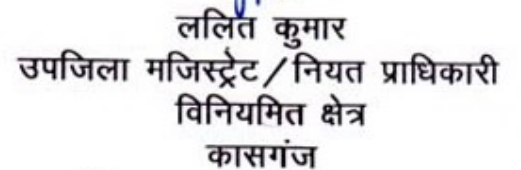 ललित कुमार
उपजिला मजिस्ट्रेट/नियत प्राधिकारी
विनियमित क्षेत्र
कासगंज